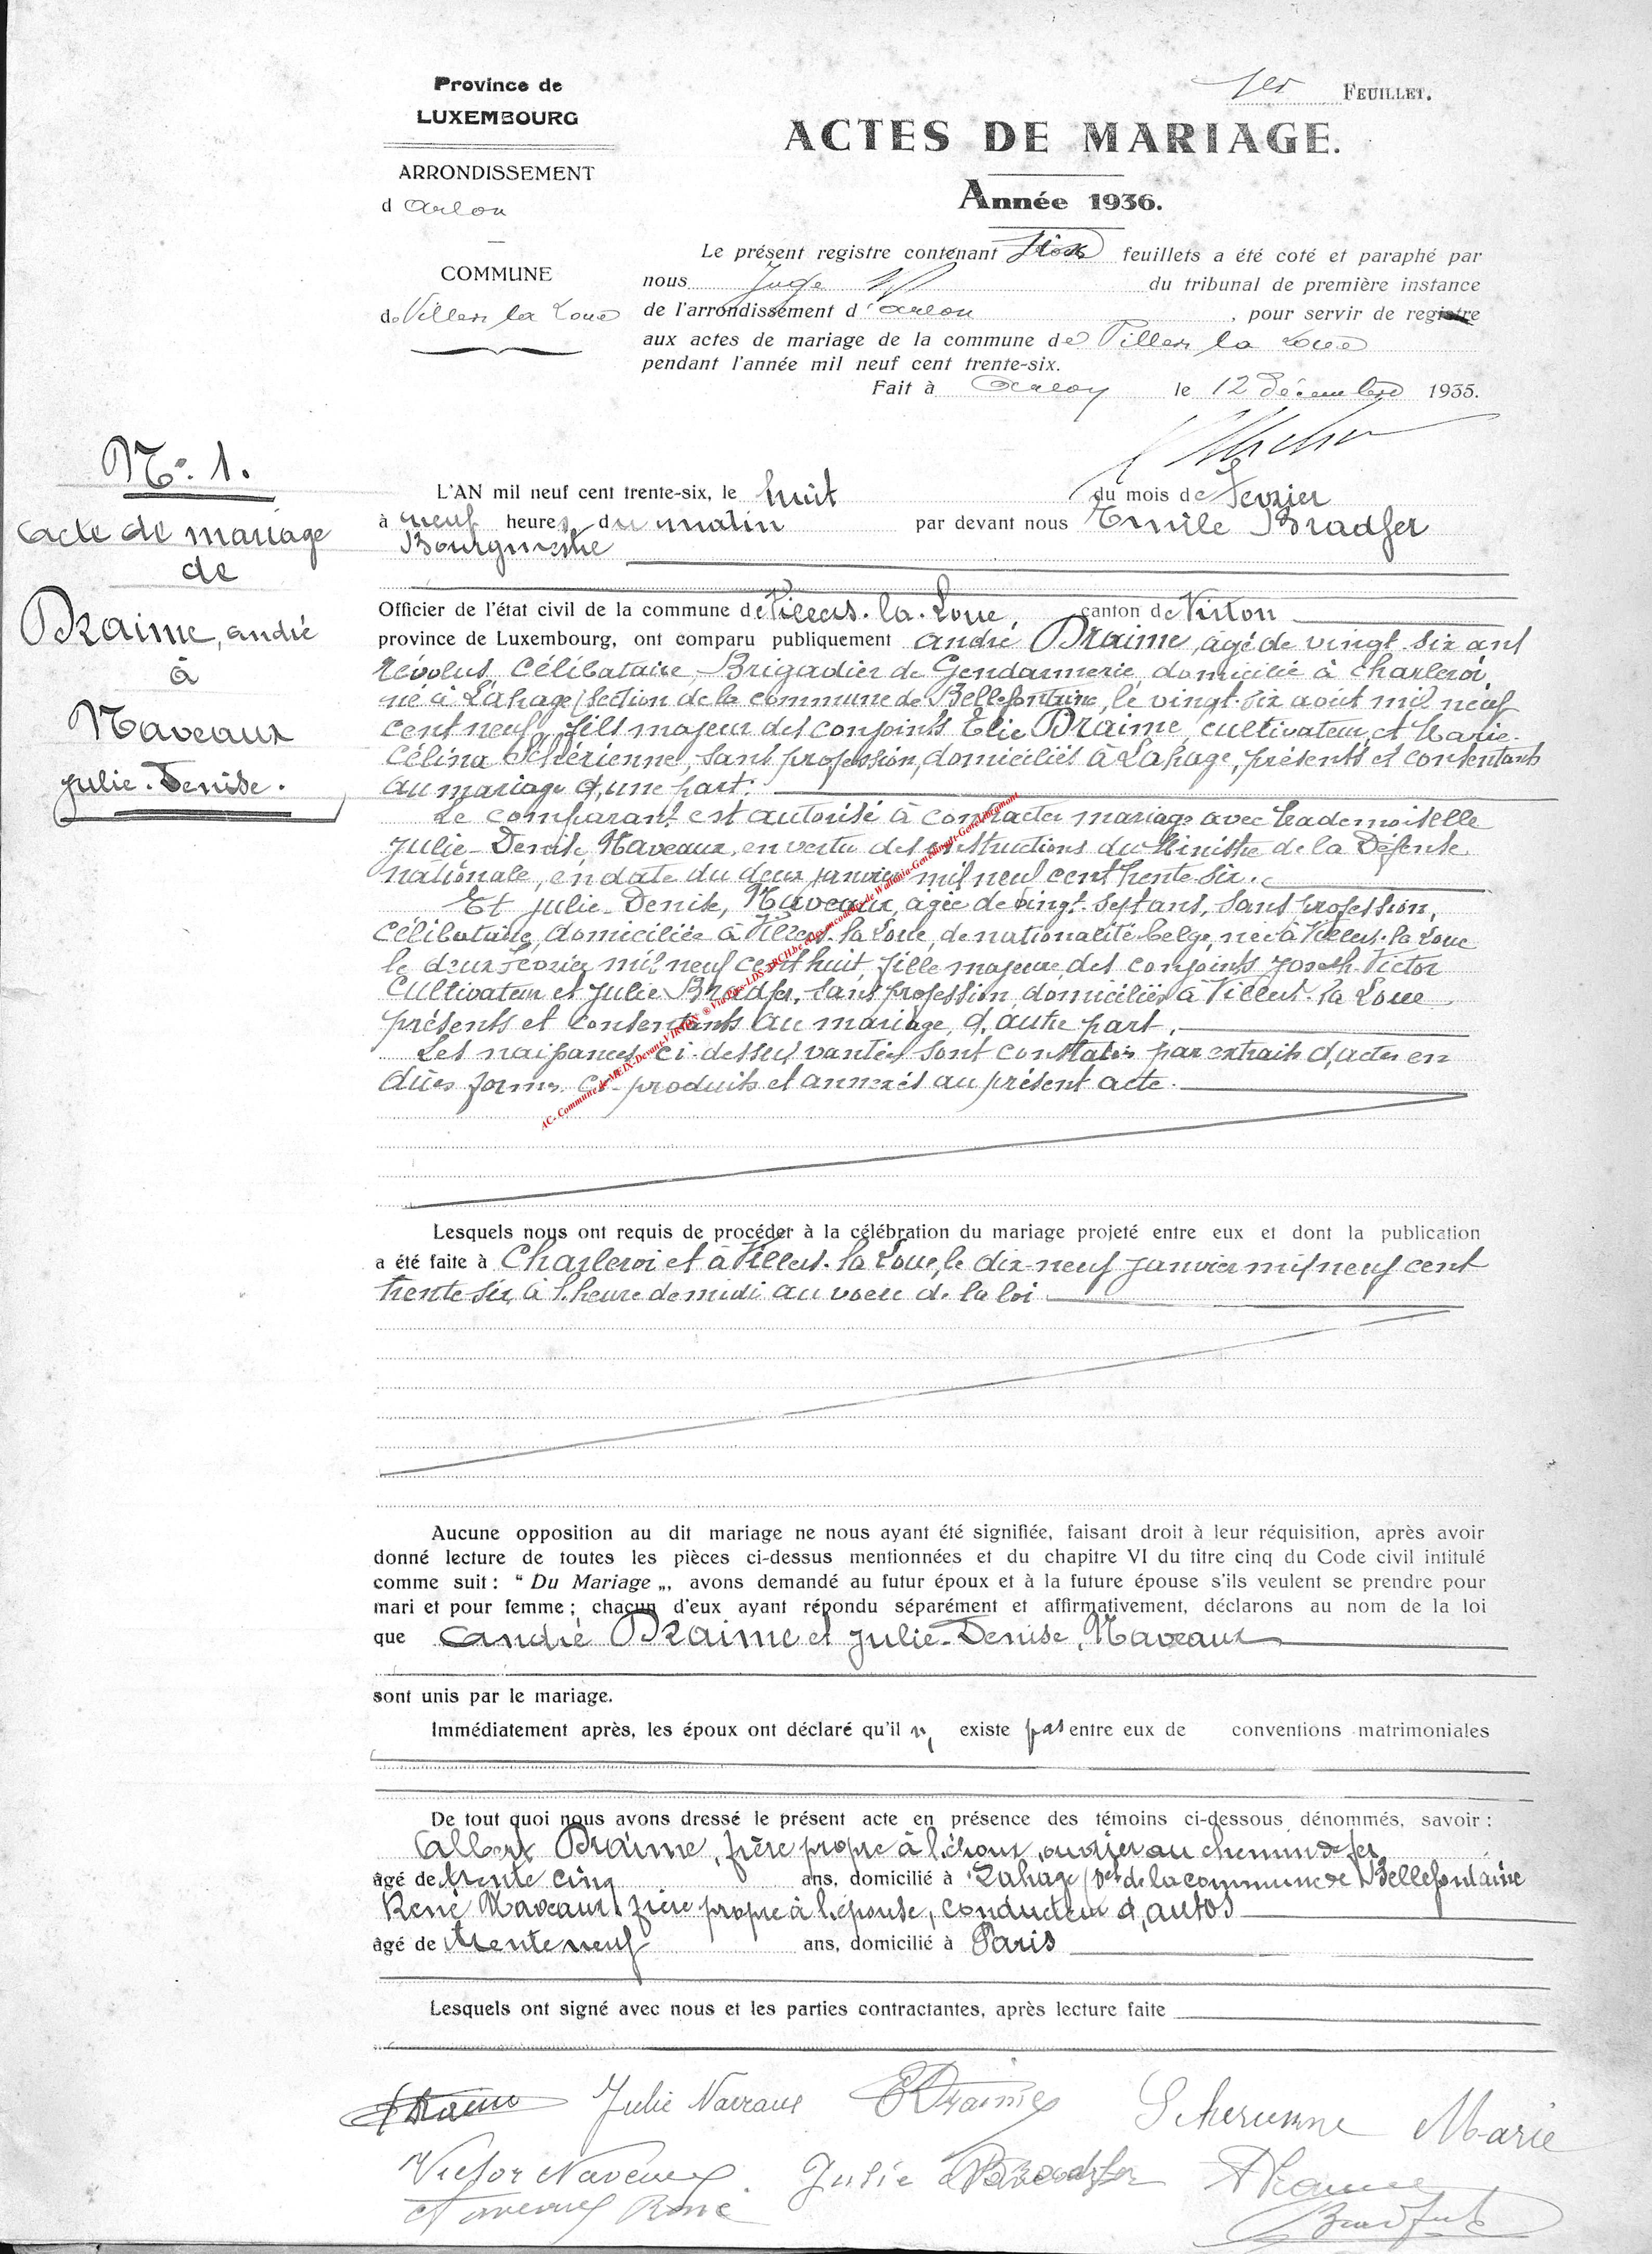 Province de
LUXEMBOURG
ARRONDISSEMENT
d'Arlon
COMMUNE
de Villers la Loue
1er FEUILLET.
ACTES DE MARIAGE.
Année 1936.
Le présent registre contenant trois feuillets a été coté et paraphé par
nous Juge du tribunal de première instance
de l'arrondissement d'Arlon, pour servir de registre
aux actes de mariage de la commune de Villers la Loue
pendant l'année mil neuf cent trente-six.
Fait à Arlon le 12 Décembre 1935.
N° 1.
Acte de mariage
de
Draime, André
à
Naveaux
Julie-Denise.
L'AN mil neuf cent trente-six, le huit du mois de Fevrier
à neuf heures du matin par devant nous Emile Bradfer
Bourgmestre
Officier de l'état civil de la commune de Villers-la-Loue, canton de Virton
province de Luxembourg, ont comparu publiquement André Draime, âgé de vingt six ans
révolus, célibataire, Brigadier de Gendarmerie domicilié à Charleroi,
né à Lahage (section de la commune de Bellefontaine, le vingt-six août mil neuf
cent neuf, fils majeur des conjoints Elie Draime, cultivateur, et Marie-
Célina Schérienne, sans profession, domiciliés à Lahage, présents et consentants
au mariage d'une part.
Le comparant est autorisé à contracter mariage avec Mademoiselle
Julie-Denise Naveaux, en vertu des instructions du Ministre de la Défense
nationale, en date du deux janvier mil neuf cent trente six.
Et Julie-Denise, Naveaux, agée de vingt-sept ans, sans profession,
célibataire, domiciliée à Villers-la-Loue, de nationalité belge, née à Villers-la-Loue
le deux fevrier mil neuf cent huit, fille majeure des conjoints Joseph-Victor
Cultivateur et Julie Bradfer, sans profession, domiciliés à Villers-la-Loue
présents et consentants au mariage, d'autre part,
Les naissances ci-dessus vantées sont constatées par extraits d'actes en
dûes formes ci-produits et annexés au présent acte.
AC- Commune de MEIX-Devant-VIRTON ® Via Pass-LDS-ARCH.be et les encodeurs de Wallonia-Geneanault-Genealogmont
Lesquels nous ont requis de procéder à la célébration du mariage projeté entre eux et dont la publication
a été faite à Charleroi et à Villers-la-Loue, le dix-neuf janvier mil neuf cent
trente six, à l'heure de midi au voeu de la loi
Aucune opposition au dit mariage ne nous ayant été signifiée, faisant droit à leur réquisition, après avoir
donné lecture de toutes les pièces ci-dessus mentionnées et du chapitre VI du titre cinq du Code civil intitulé
comme suit : “ Du Mariage „, avons demandé au futur époux et à la future épouse s'ils veulent se prendre pour
mari et pour femme ; chacun d'eux ayant répondu séparément et affirmativement, déclarons au nom de la loi
que André Draime et Julie-Denise, Naveaux
sont unis par le mariage.
Immédiatement après, les époux ont déclaré qu'il n'existe pas entre eux de conventions matrimoniales
De tout quoi nous avons dressé le présent acte en présence des témoins ci-dessous dénommés, savoir :
Albert Draime, frère propre à l'époux, ouvrier au chemin de fer,
âgé de trente cinq ans, domicilié à Lahage (son de la commune de Bellefontaine
René Naveaux, frère propre à l'épouse, conducteur d'autos
âgé de trente neuf ans, domicilié à Paris
Lesquels ont signé avec nous et les parties contractantes, après lecture faite
ADraime Julie Naveaux EDraime Scherienne Marie
Victor Naveaux Julie Bradfer ADraime
Naveaux René Bradfer